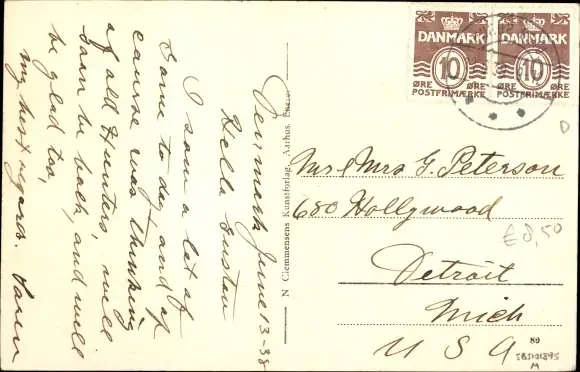 Denmark June 13-38
Hello Gustav
I saw a lot of
Game to day and of
course was thinking
of all Hunters, will
soon be back, and will
be glad too,
my best regards. Soren
N Clemmensens Kunstforlag, Aarhus.
DANMARK
10
ØRE
POSTFRIMÆRKE
DANMARK
10
ØRE
POSTFRIMÆRKE
Mr & Mrs G. Peterson
680 Hollywood
Detroit
Mich
U S A
D
£8,50
SBS101895
M